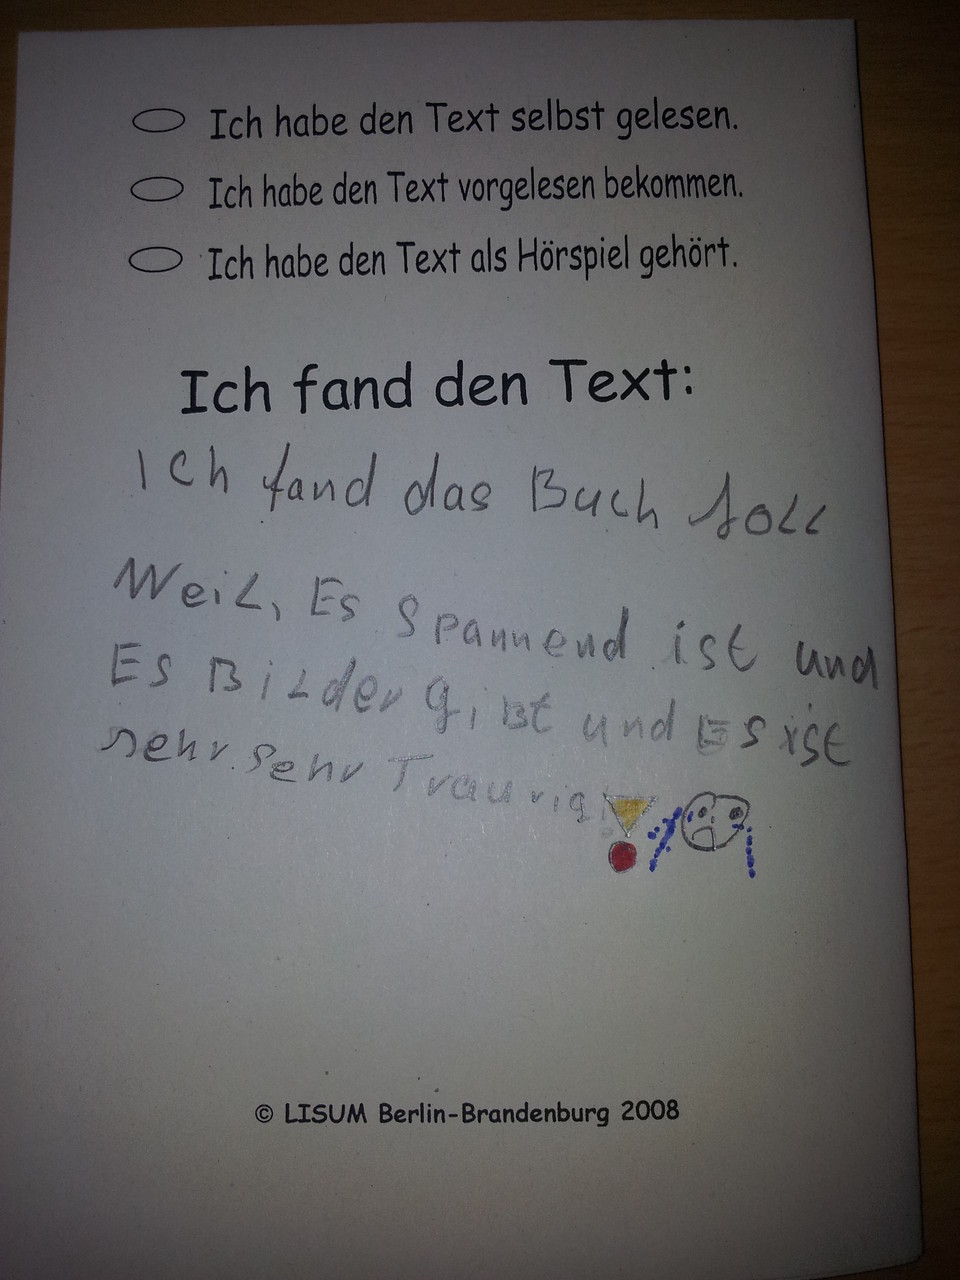 Ich habe den Text selbst gelesen.
Ich habe den Text vorgelesen bekommen.
Ich habe den Text als Hörspiel gehört.
Ich fand den Text:
Ich fand das Buch toll
Weil, Es Spannend ist und
Es Bilder gibt und Es ist
sehr sehr Traurig!
© LISUM Berlin-Brandenburg 2008